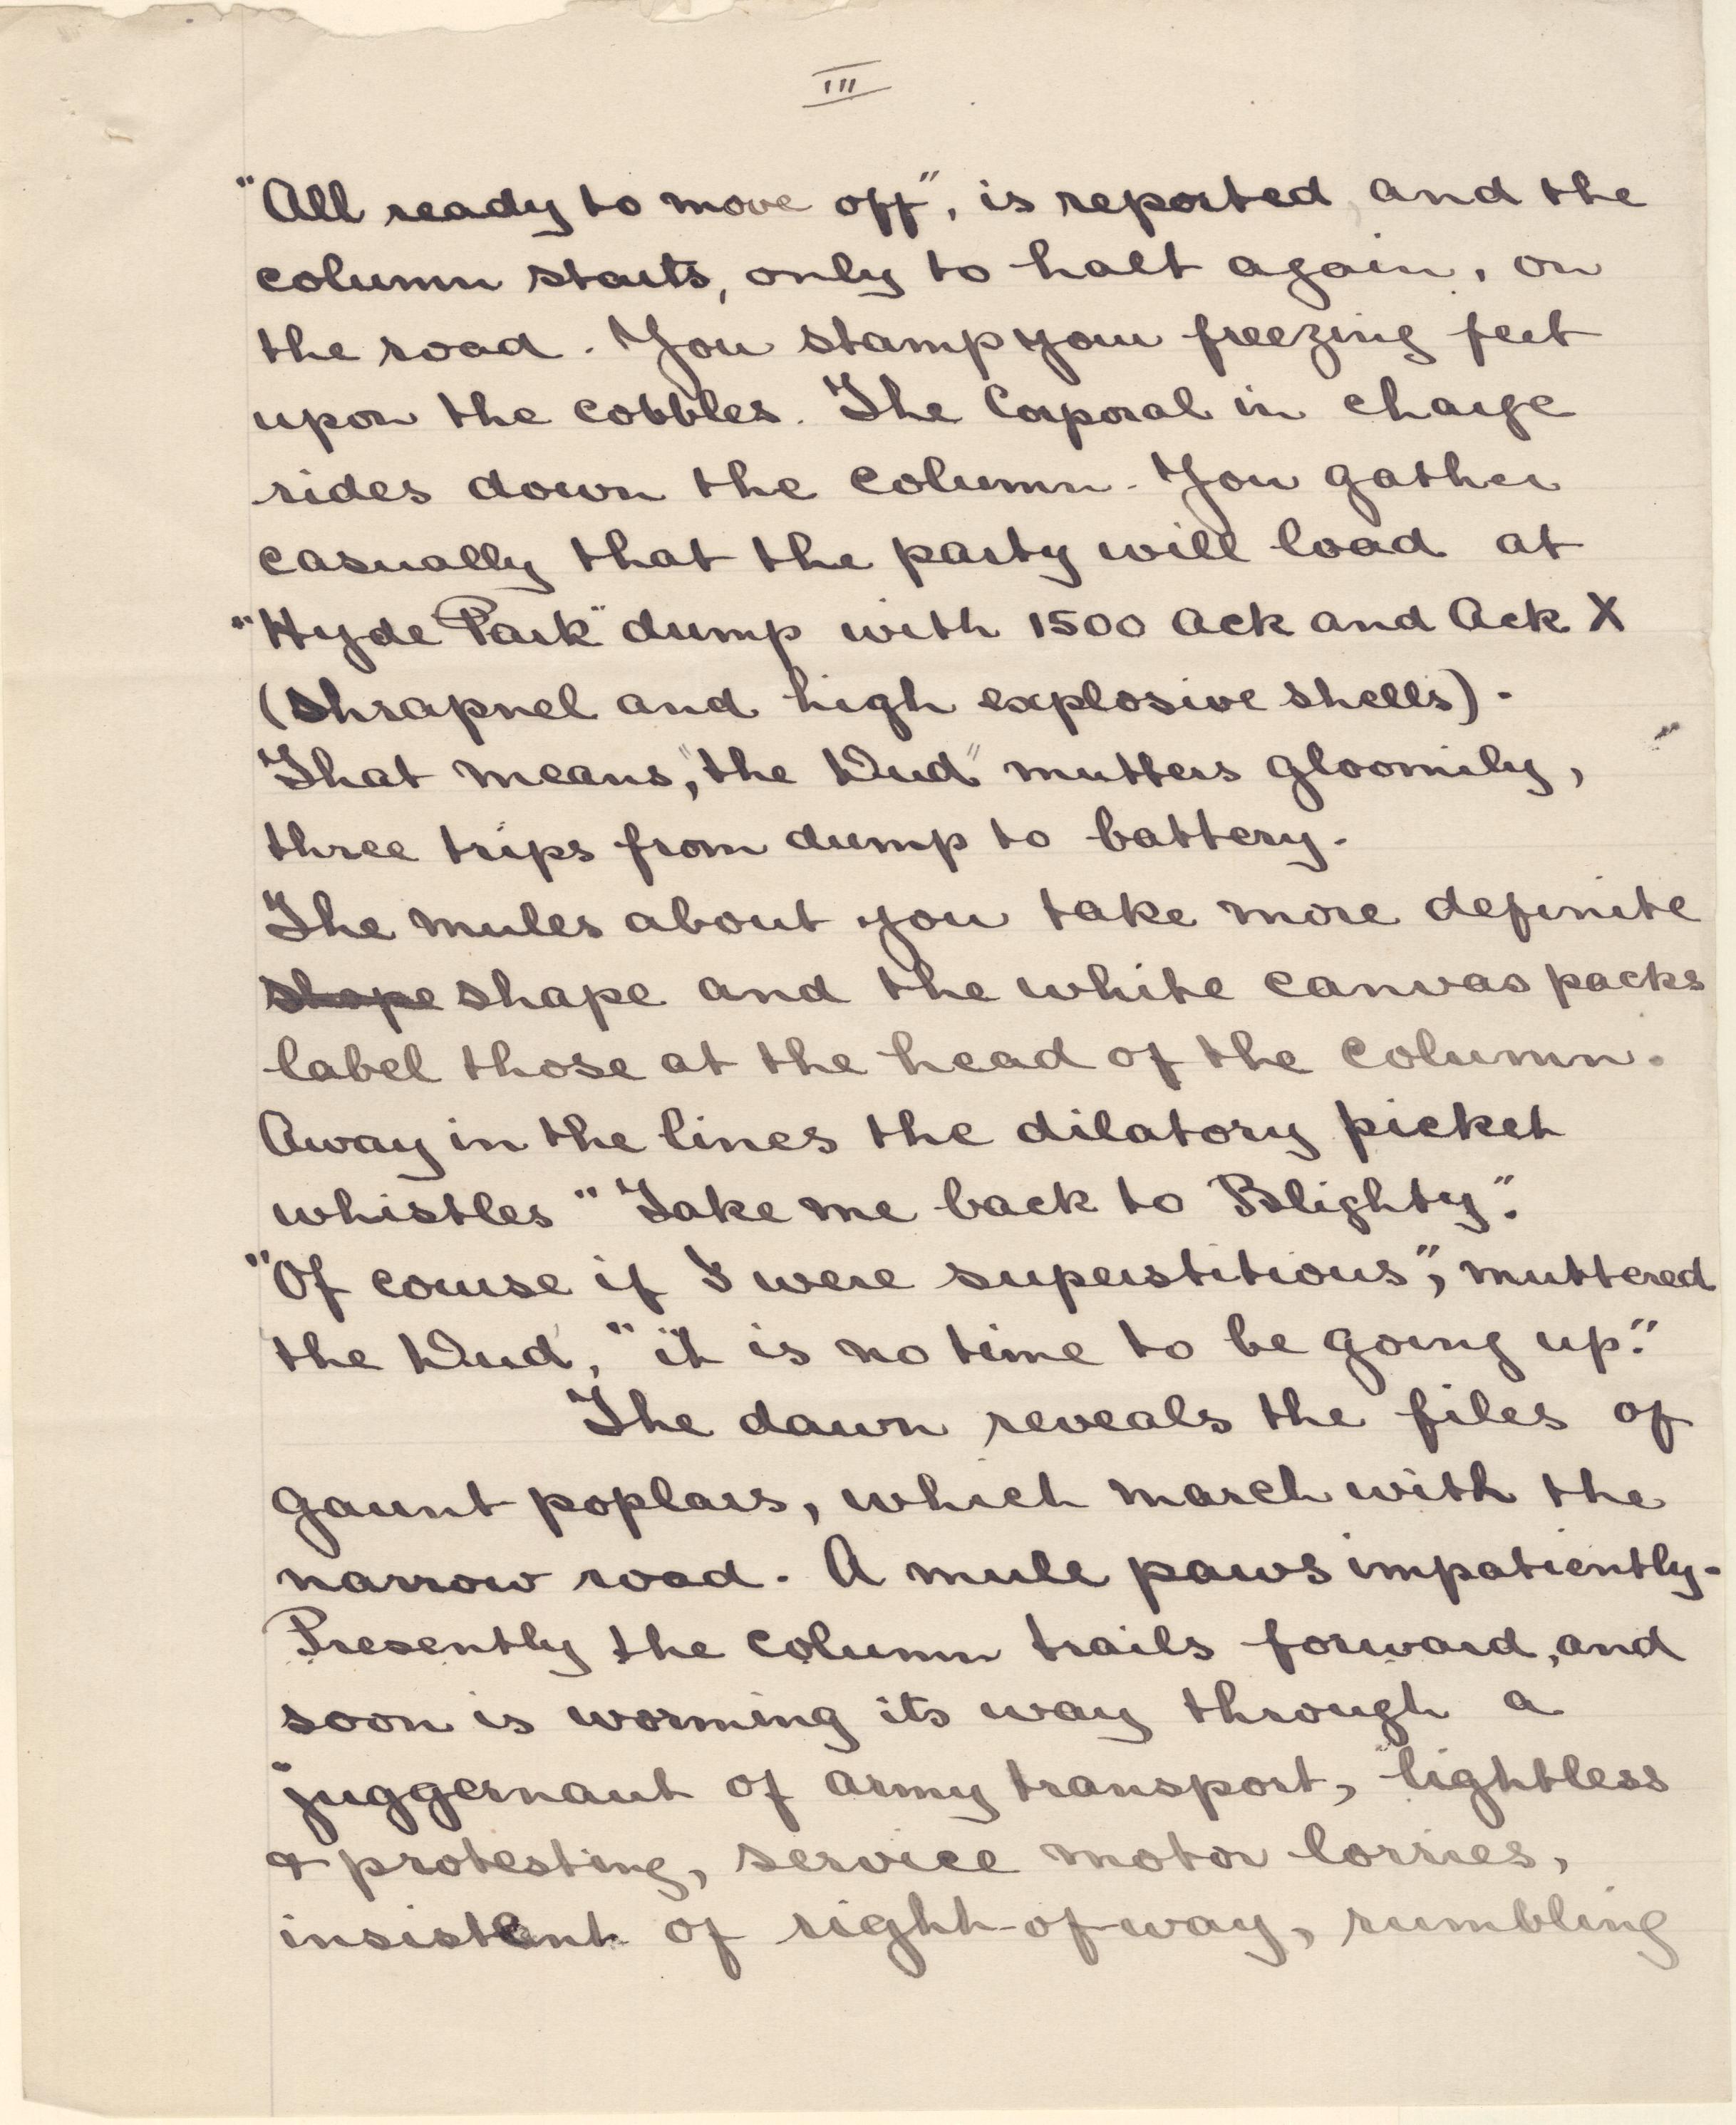 III
"All ready to move off", is reported, and the
column starts, only to halt again, on
the road. You stamp your freezing feet
upon the cobbles. The Corporal in charge
rides down the column. You gather
casually that the party will load at
"Hyde Park" dump with 1500 Ack and Ack X
(shrapnel and high explosive shells).
That means, "the Dud" mutters gloomily,
three trips from dump to battery.
The mules about you take more definite
shape shape and the white canvas packs
label those at the head of the column.
Away in the lines the dilatory picket
whistles "Take me back to Blighty".
"Of course if I were superstitious", muttered
'the Dud', "it is no time to be going up."
The dawn reveals the files of
gaunt poplars, which march with the
narrow road. A mule paws impatiently.
Presently the column trails forward, and
soon is worming its way through a
juggernaut of army transport, lightless
& protesting, service motor lorries,
insistent of right-of-way, rumbling